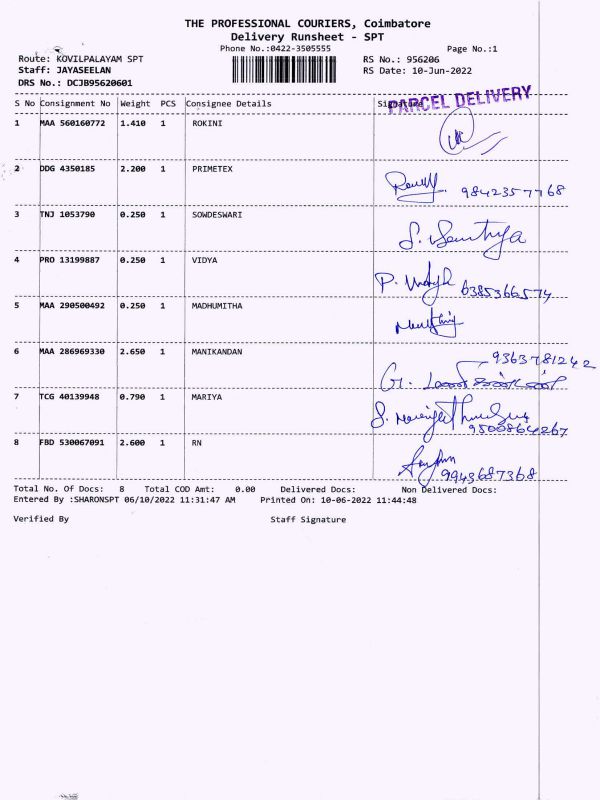 THE PROFESSIONAL COURIERS, Coimbatore
Delivery Runsheet - SPT
Phone No.:0422-3505555 Page No.:1
Route: KOVILPALAYAM SPT RS No.: 956206
Staff: JAYASEELAN RS Date: 10-Jun-2022
DRS No.: DCJB95620601
S No Consignment No Weight PCS Consignee Details Signature
PARCEL DELIVERY
1 MAA 560160772 1.410 1 ROKINI
2 DDG 4350185 2.200 1 PRIMETEX
9842357768
3 TNJ 1053790 0.250 1 SOWDESWARI
S.
4 PRO 13199887 0.250 1 VIDYA
P. 6385366574
5 MAA 290500492 0.250 1 MADHUMITHA
6 MAA 286969330 2.650 1 MANIKANDAN
9363781242
G.
7 TCG 40139948 0.790 1 MARIYA
S.
9500864267
8 FBD 530067091 2.600 1 RN
9943687368
Total No. Of Docs: 8 Total COD Amt: 0.00 Delivered Docs: Non Delivered Docs:
Entered By :SHARONSPT 06/10/2022 11:31:47 AM Printed On: 10-06-2022 11:44:48
Verified By Staff Signature